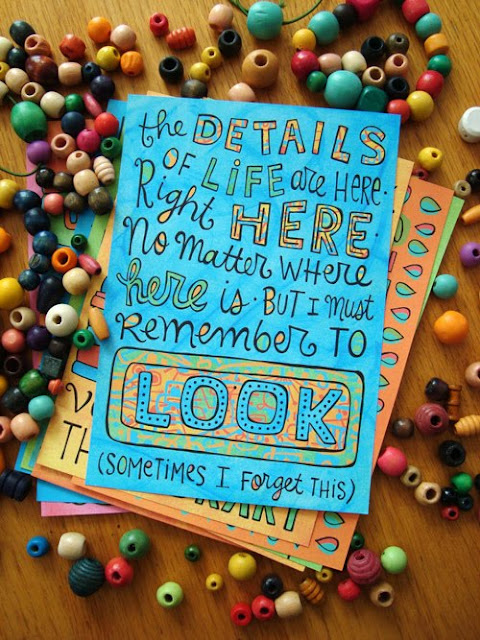 the DETAILS
OF LiFE are HERE.
Right HERE.
No MATTER WHERE
here is. BUT I must
Remember TO
LOOK
(SOMETIMES I FORGET THIS)